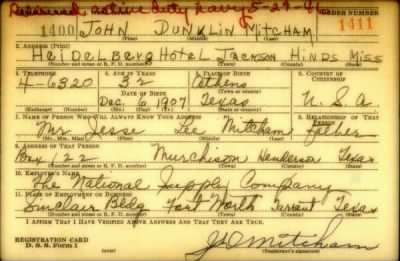 Released, active duty navy 5-29-46
ORDER NUMBER
1400 JOHN DUNKLIN MITCHAM 1411
(First) (Middle) (Last)
2. ADDRESS (Print)
Heidelberg Hotel Jackson Hinds Miss
(Number and street or R. F. D. number) (Town) (County) (State)
3. TELEPHONE 4. AGE IN YEARS 5. PLACE OF BIRTH 6. COUNTRY OF CITIZENSHIP
4-6320 32 Athens
DATE OF BIRTH
Dec 6 1907 Texas U.S.A.
(Exchange) (Number) (Mo.) (Day) (Yr.) (State or country)
7. NAME OF PERSON WHO WILL ALWAYS KNOW YOUR ADDRESS 8. RELATIONSHIP OF THAT PERSON
Mr Jesse Lee Mitcham Father
(Mr., Mrs., Miss) (First) (Middle) (Last)
9. ADDRESS OF THAT PERSON
Box 122 Murchison Henderson Texas
(Number and street or R. F. D. number) (Town) (County) (State)
10. EMPLOYER'S NAME
The National Supply Company
11. PLACE OF EMPLOYMENT OR BUSINESS
Sinclair Bldg Fort Worth Tarrant Texas
(Number and street or R. F. D. number) (Town) (County) (State)
I AFFIRM THAT I HAVE VERIFIED ABOVE ANSWERS AND THAT THEY ARE TRUE.
REGISTRATION CARD
D. S. S. Form 1
J D Mitcham
(Registrant's signature)